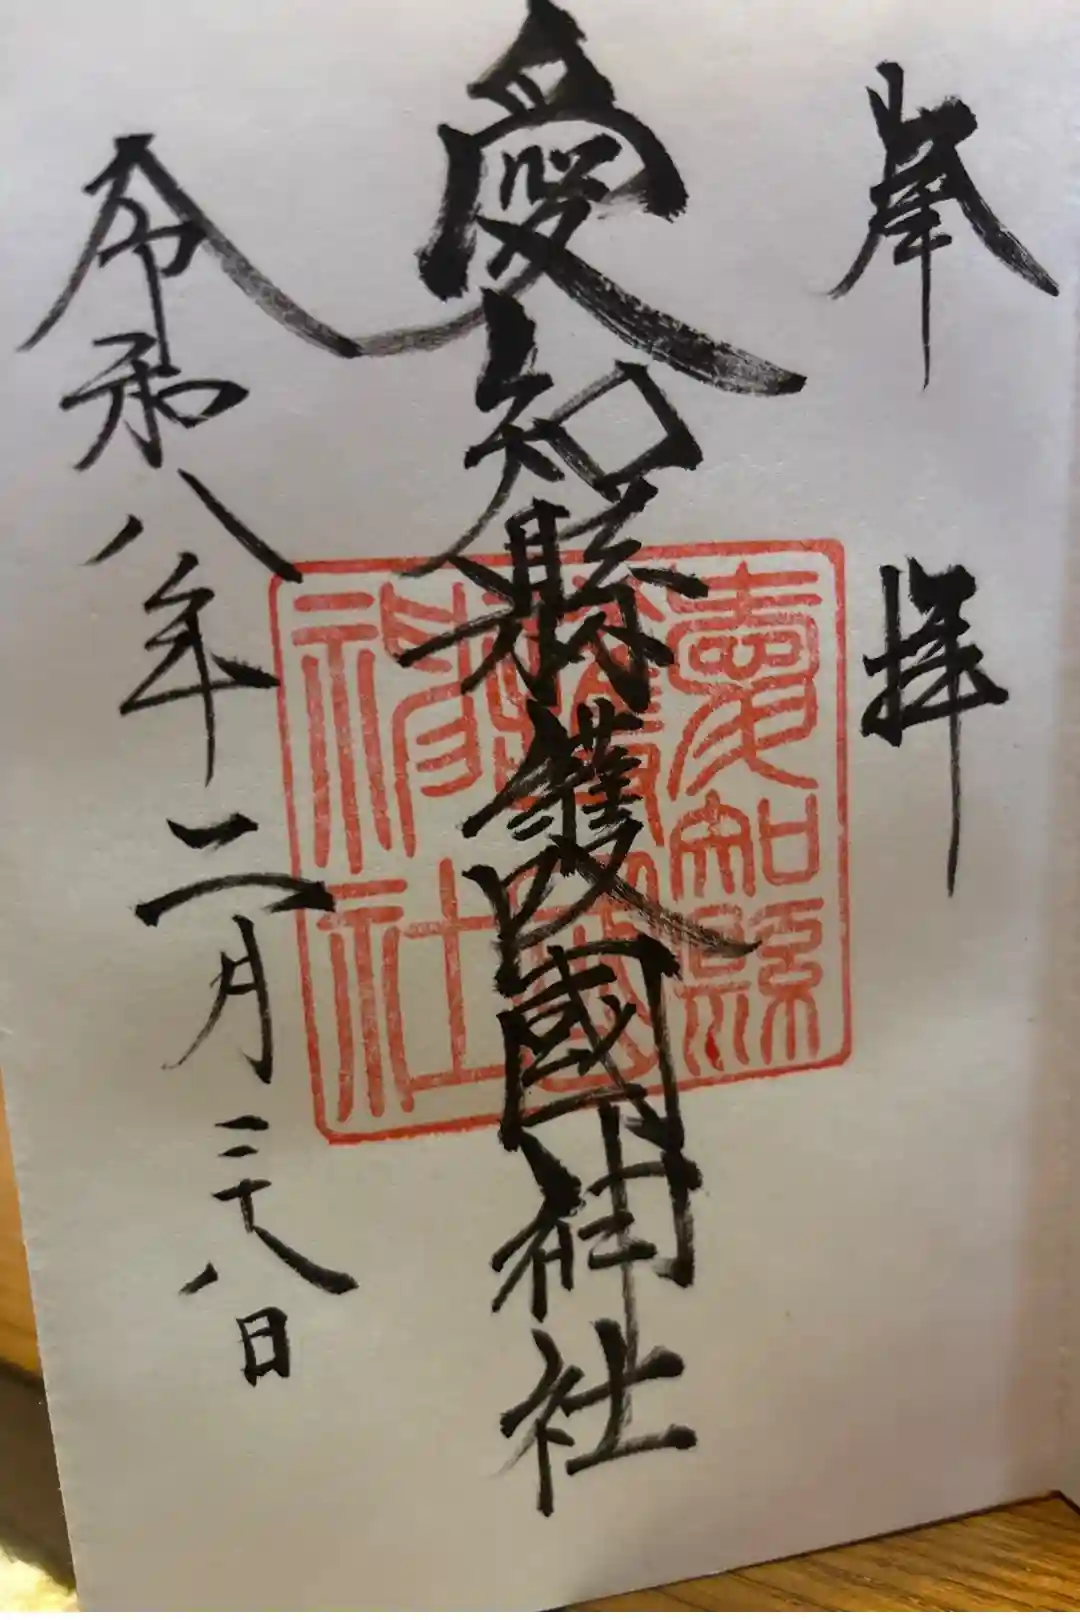 奉拝
愛知縣護國神社
愛知縣
護國
神社
令和八年二月二十八日